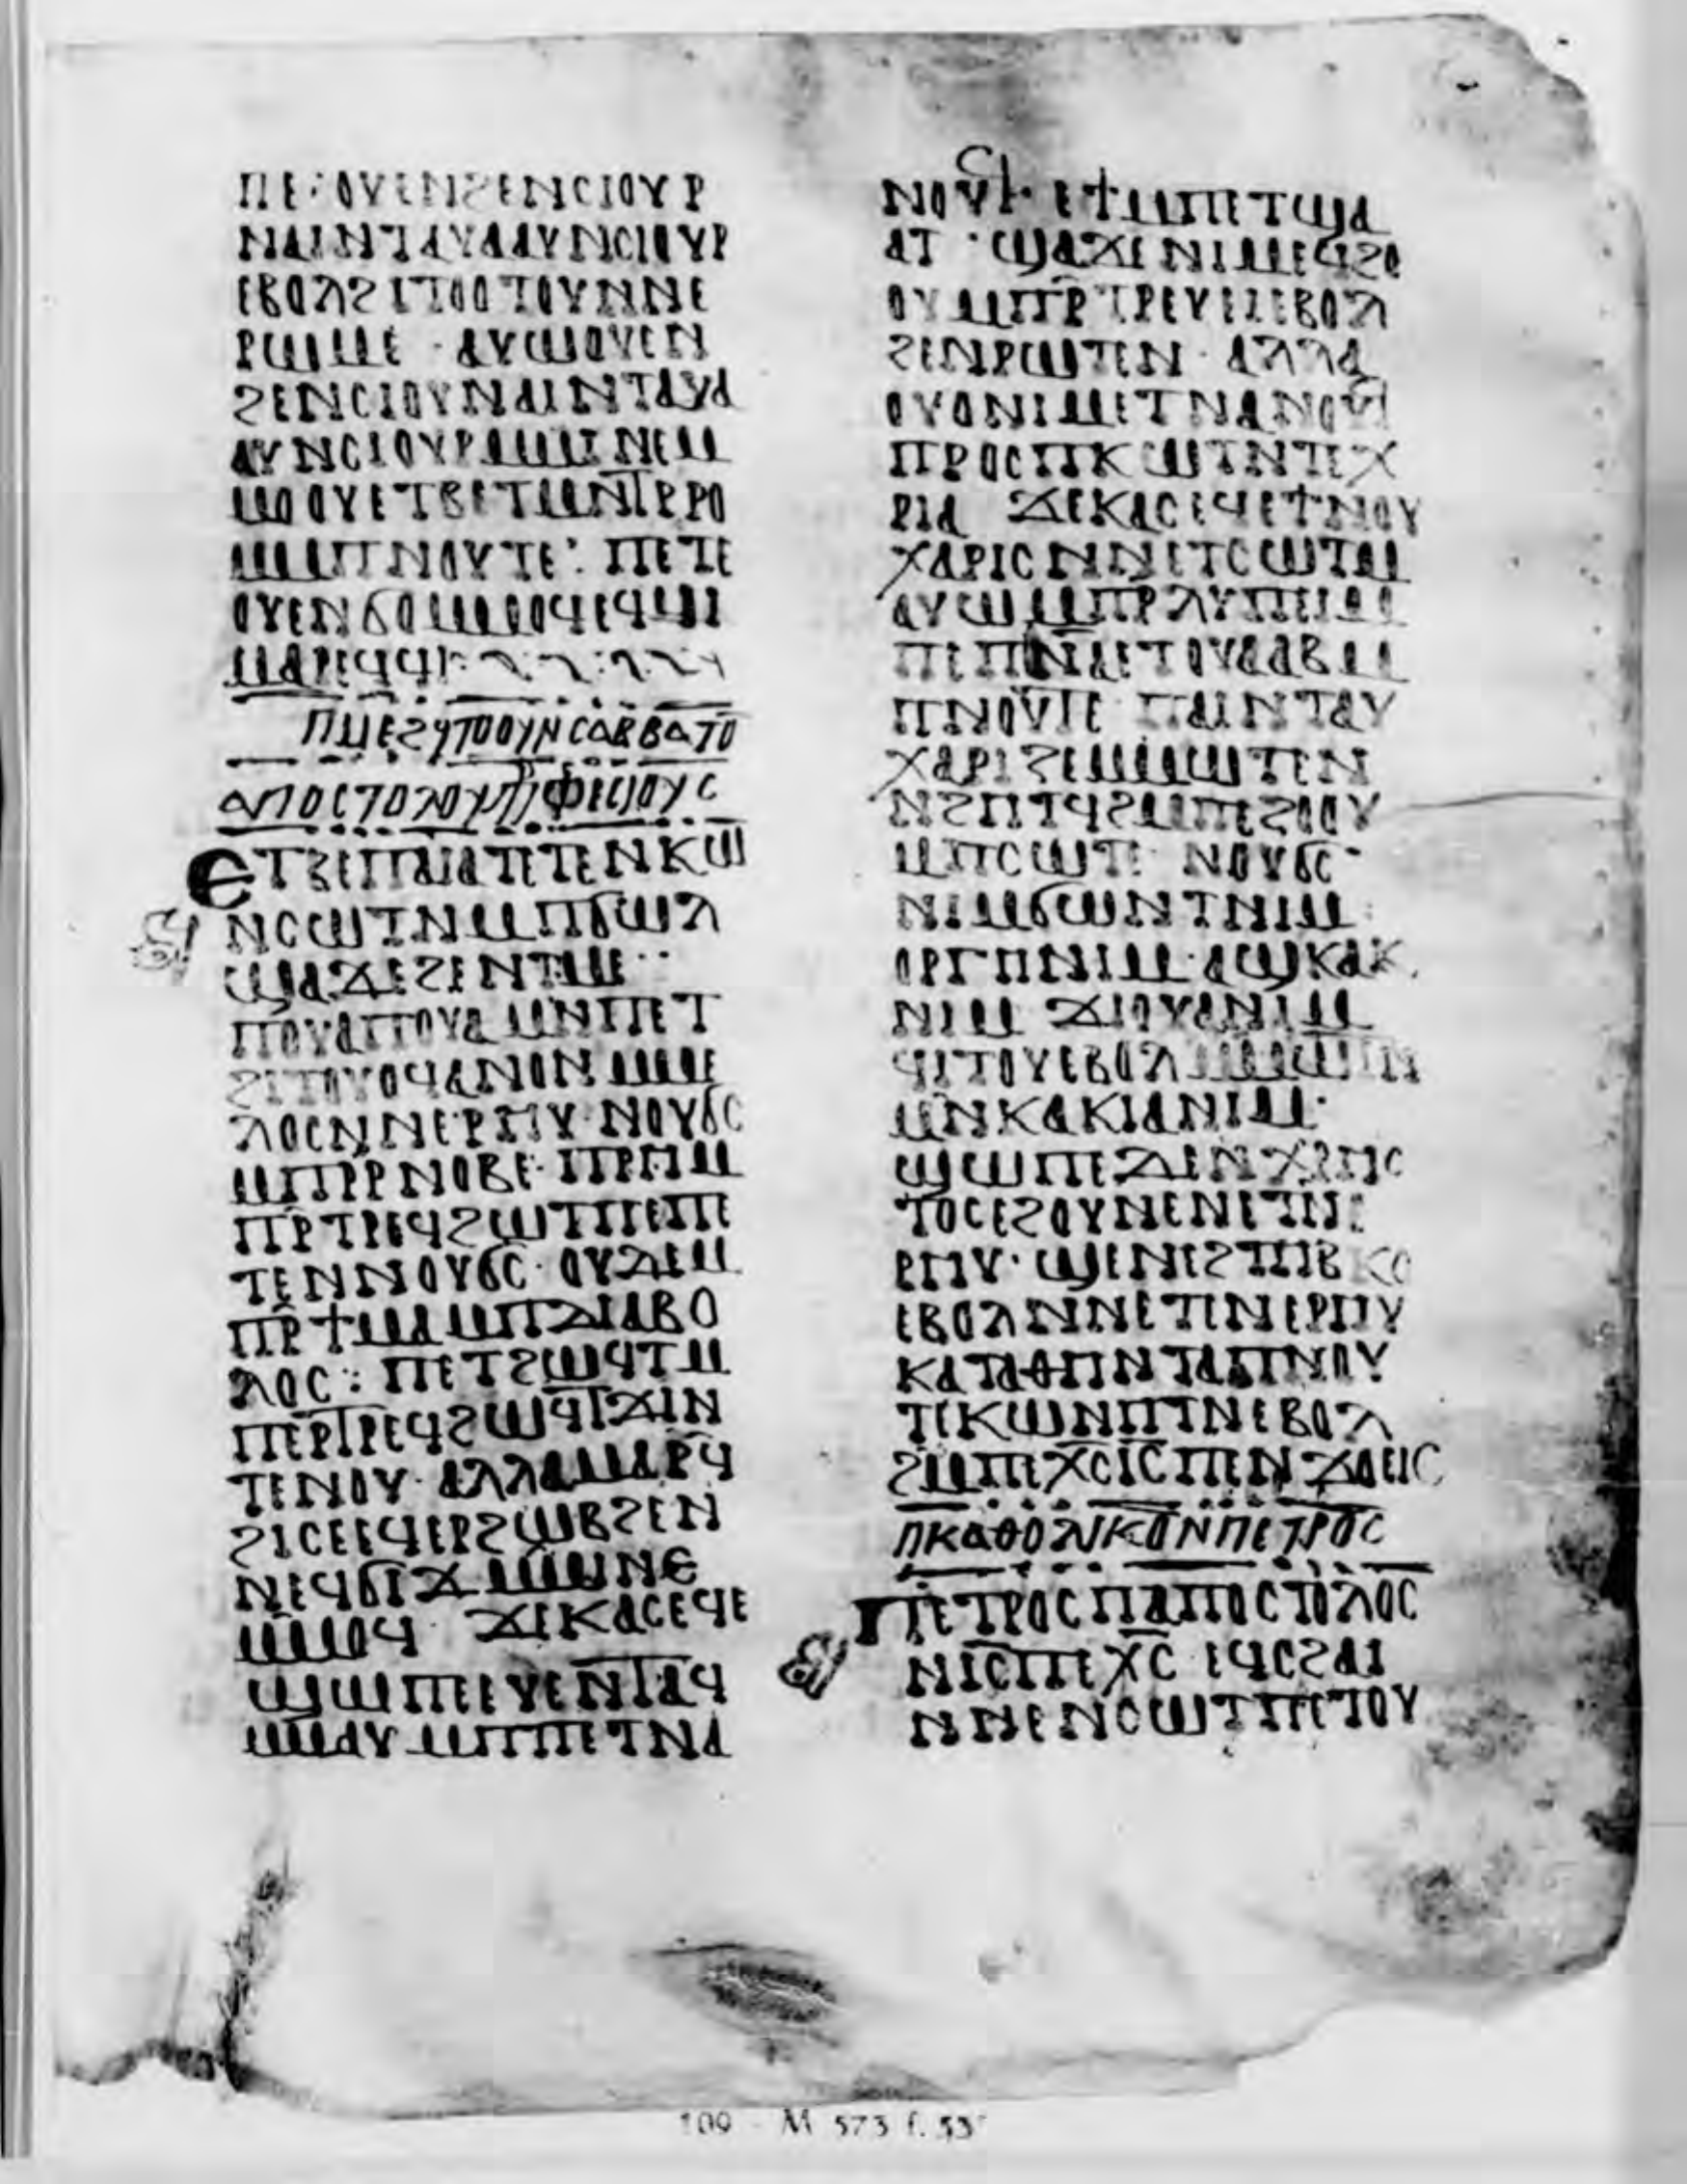 ⲡⲉ · ⲟⲩⲉⲛϩⲉⲛⲥⲓⲟⲩⲣ
ⲛⲁⲓⲛⲧⲁⲩⲁⲁⲩⲛⲥⲓⲟⲩⲣ
ⲉⲃⲟⲗϩⲓⲧⲟⲟⲧⲟⲩⲛⲛⲉ
ⲣⲱⲙⲉ · ⲁⲩⲱⲟⲩⲉⲛ
ϩⲉⲛⲥⲓⲟⲩⲛⲁⲓⲛⲧⲁⲩⲁ
ⲁⲩⲛⲥⲓⲟⲩⲣⲙⲙⲓⲛⲉⲙ
ⲙⲟⲟⲩⲉⲧⲃⲉⲧⲙⲛⲧⲉⲣⲣⲟ
ⲙⲙⲡⲛⲟⲩⲧⲉ : ⲡⲉⲧⲉ
ⲟⲩⲉⲛϭⲟⲙⲙⲟϥⲉϥⲓ
ⲙⲁⲣⲉϥϥⲓ
ⲡⲙⲉϩϥⲧⲟⲟⲩⲛⲥⲁⲃⲃⲁⲧⲟ
ⲁⲡⲟⲥⲧⲟⲗⲟⲩⲡⲣⲟⲥⲉⲫⲉⲥⲓⲟⲩⲥ
ⲉⲧⲃⲉⲡⲁⲓⲁⲧⲉⲧⲉⲛⲕⲱ
ⲛⲥⲱⲧⲛⲙⲡϭⲱⲗ
ϣⲁϫⲉϩⲉⲛⲧⲙⲉ ··
ⲡⲟⲩⲁⲡⲟⲩⲁⲙⲛⲡⲉⲧ
ϩⲓⲧⲟⲩⲟϥⲁⲛⲟⲛⲙⲙⲉ
ⲗⲟⲥⲛⲛⲉⲣⲏⲩ · ⲛⲟⲩϭⲥ
ⲙⲡⲣⲣⲛⲟⲃⲉ · ⲡⲣⲏⲙ
ⲡⲣⲧⲣⲉϥϩⲱⲧⲡⲉⲡⲉ
ⲧⲉⲛⲛⲟⲩϭⲥ · ⲟⲩⲇⲉⲙ
ⲡⲣϯⲙⲁⲙⲡⲇⲓⲁⲃⲟ
ⲗⲟⲥ : ⲡⲉⲧϩⲱϥⲧⲙ
ⲡⲉⲣⲧⲣⲉϥϩⲱϥⲧϫⲓⲛ
ⲧⲉⲛⲟⲩ · ⲁⲗⲗⲁⲙⲁⲣϥ
ϩⲓⲥⲉⲉϥⲉⲣϩⲱⲃϩⲉⲛ
ⲛⲉϥϭⲓϫⲙⲙⲓⲛⲉ
ⲙⲙⲟϥ ϫⲉⲕⲁⲥⲉϥⲉ
ϣⲱⲡⲉⲉⲩⲉⲛⲧⲁϥ
ⲙⲙⲁⲩⲙⲡⲡⲉⲧⲛⲁ
ⲛⲟⲩϥ · ⲉϯⲙⲡⲉⲧϣⲁ
ⲁⲧ · ϣⲁϫⲉⲛⲓⲙⲉϥϩⲟ
ⲟⲩⲙⲡⲣⲧⲣⲉⲩⲉⲓⲉⲃⲟⲗ
ϩⲉⲛⲣⲱⲧⲉⲛ · ⲁⲗⲗⲁ
ⲟⲩⲟⲛⲓⲙⲉⲧⲛⲁⲛⲟⲩϥ
ⲡⲣⲟⲥⲡⲕⲱⲧⲛⲧⲉⲭ
ⲣⲓⲁ ϫⲉⲕⲁⲥⲉϥⲉϯⲛⲟⲩ
ⲭⲁⲣⲓⲥⲛⲛⲉⲧⲥⲱⲧⲙ
ⲁⲩⲱⲙⲡⲣⲗⲩⲡⲉⲓⲙ
ⲡⲉⲡⲛⲁⲉⲧⲟⲩⲁⲁⲃⲙ
ⲡⲛⲟⲩⲧⲉ ⲡⲁⲓⲛⲧⲁⲩ
ⲭⲁⲣⲓϩⲉⲙⲙⲱⲧⲉⲛ
ⲛϩⲏⲧϥϩⲙⲡⲉϩⲟⲟⲩ
ⲙⲡⲥⲱⲧⲉ ⲛⲟⲩϭⲥ
ⲛⲓⲙϭⲱⲛⲧⲛⲓⲙ
ⲟⲣⲅⲏⲛⲓⲙ · ⲁϣⲕⲁⲕ
ⲛⲓⲙ ϫⲓⲟⲩⲁⲛⲓⲙ
ϥⲓⲧⲟⲩⲉⲃⲟⲗⲙⲙⲱⲧⲛ
ⲙⲛⲕⲁⲕⲓⲁⲛⲓⲙ ·
ϣⲱⲡⲉⲇⲉⲛⲭⲣⲏⲥ
ⲧⲟⲥⲉϩⲟⲩⲛⲉⲛⲉⲧⲛ
ⲣⲏⲩ · ϣⲉⲛⲉϩⲧⲏⲃⲕⲱ
ⲉⲃⲟⲗⲛⲛⲉⲧⲛⲉⲣⲏⲩ
ⲕⲁⲧⲁⲑⲏⲛⲧⲁⲡⲛⲟⲩ
ⲧⲉⲕⲱⲛⲏⲧⲛⲉⲃⲟⲗ
ϩⲙⲡⲉⲭⲥⲓⲥⲡⲉⲛϫⲟⲉⲓⲥ
ⲡⲕⲁⲑⲟⲗⲓⲕⲟⲛⲡⲉⲧⲣⲟⲥ
ⲡⲉⲧⲣⲟⲥⲡⲁⲡⲟⲥⲧⲟⲗⲟⲥ
ⲛⲓⲥⲡⲉⲭⲥ ⲉϥⲥϩⲁⲓ
ⲛⲛⲉⲛⲥⲱⲧⲡⲉⲧⲟⲩ
109 - M 573 f. 53ʳ